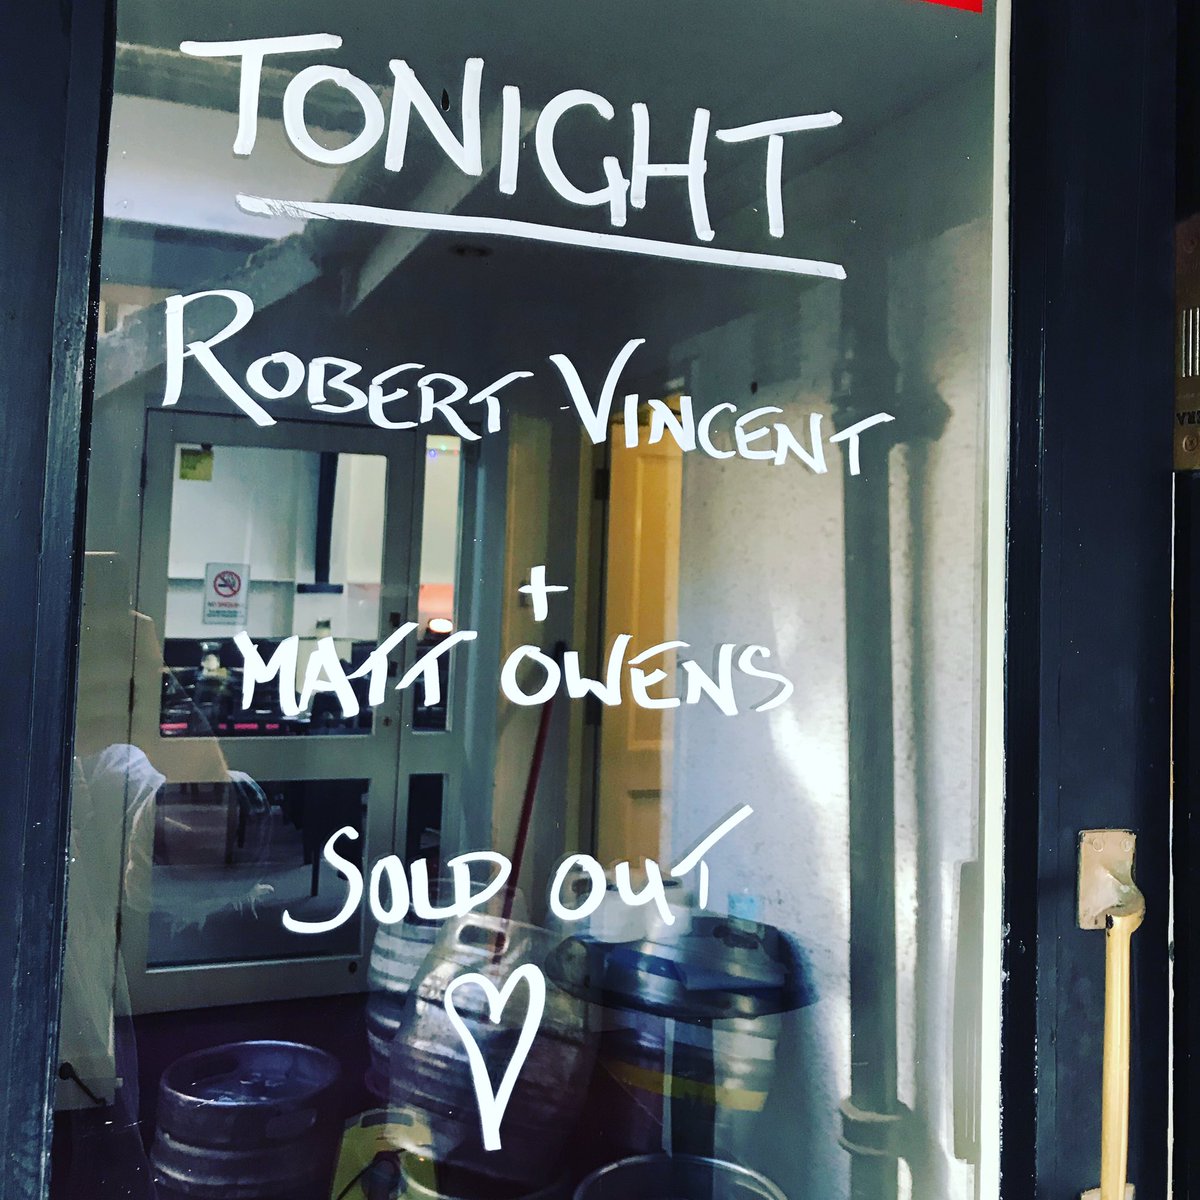 TONIGHT
ROBERT VINCENT
+
MATT OWENS
SOLD OUT
NO SMOKING